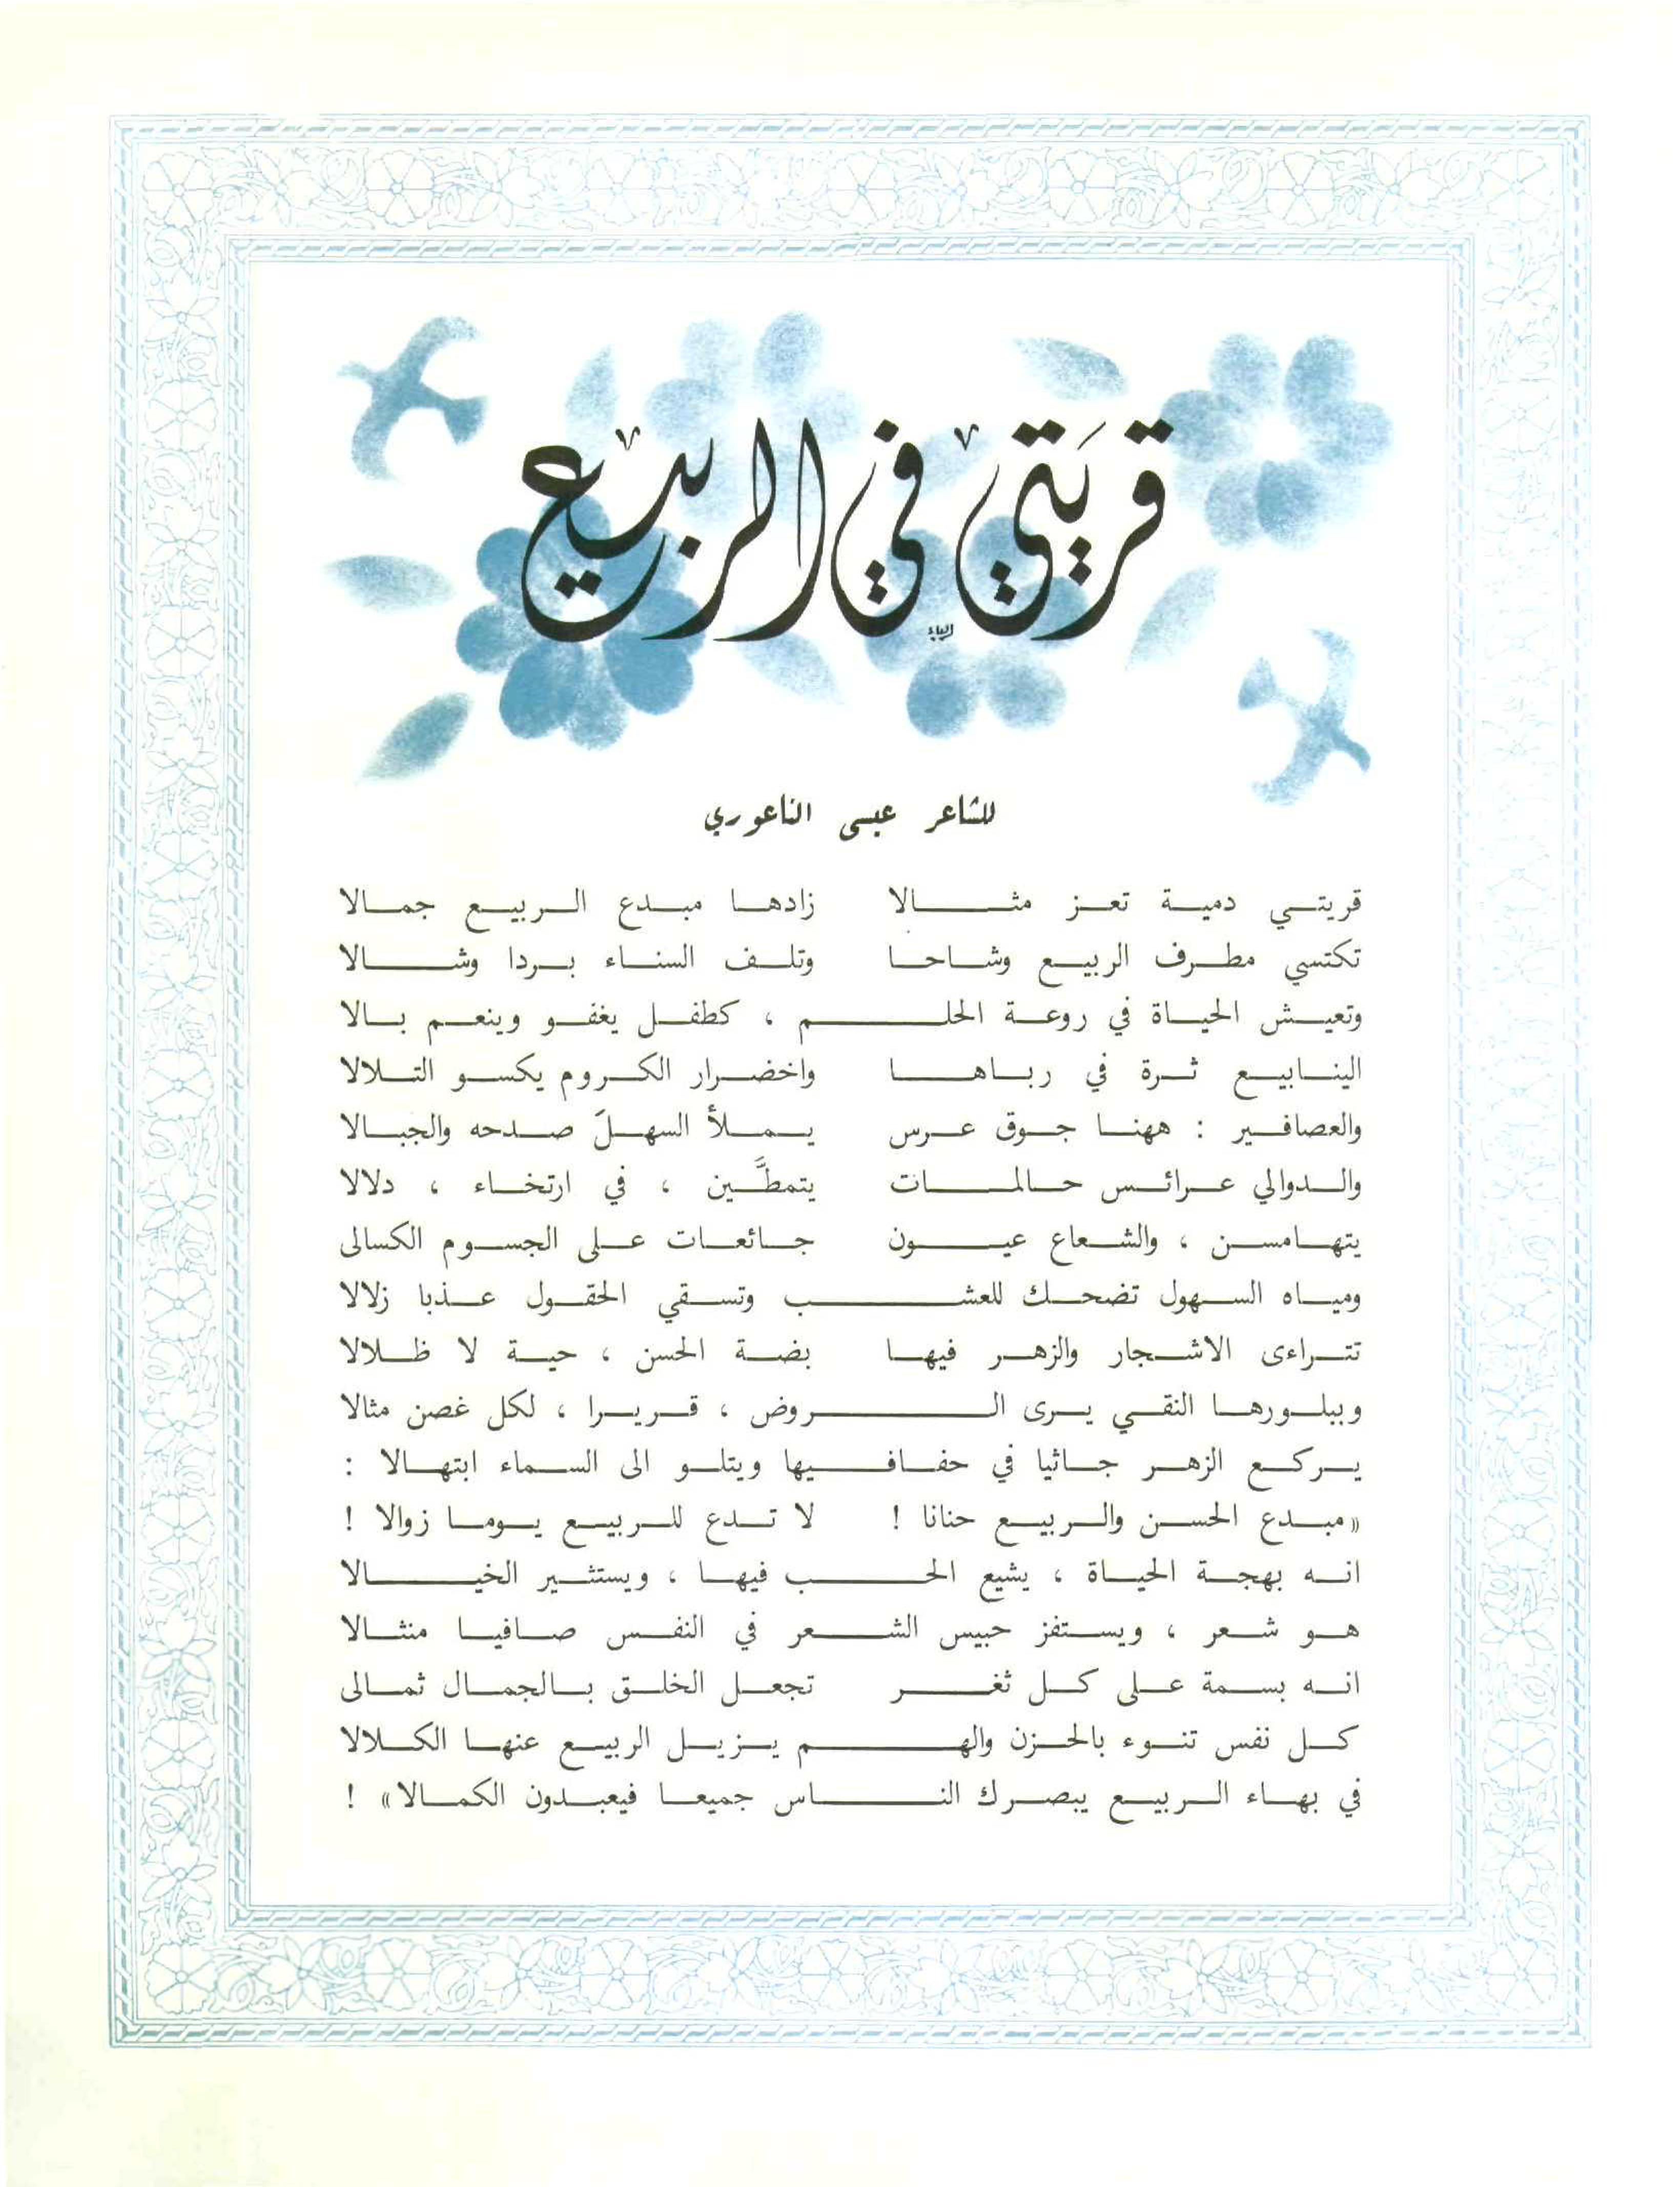 قريتي في الربيع
للشاعر عيسى الناعوري
قريتي دمية تعز مثالا زادها مبدع الربيع جمالا
تكتسي مطرف الربيع وشاحا وتلف السناء بردا وشالا
وتعيش الحياة في روعة الحلم ، كطفل يغفو وينعم بالا
الينابيع ثرة في رباها واخضرار الكروم يكسو التلالا
والعصافير : ههنا جوق عرس يملأ السهلَ صدحه والجبالا
والدوالي عرائس حالمات يتمطَّين ، في ارتخاء ، دلالا
يتهامسن ، والشعاع عيون جائعات على الجسوم الكسالى
ومياه السهول تضحك للعشب وتسقي الحقول عذبا زلالا
تتراءى الاشجار والزهر فيها بضة الحسن ، حية لا ظلالا
وببلورها النقي يرى الروض ، قريرا ، لكل غصن مثالا
يركع الزهر جاثيا في حفافيها ويتلو الى السماء ابتهالا :
«مبدع الحسن والربيع حنانا ! لا تدع للربيع يوما زوالا !
انه بهجة الحياة ، يشيع الحب فيها ، ويستثير الخيالا
هو شعر ، ويستفز حبيس الشعر في النفس صافيا منثالا
انه بسمة على كل ثغر تجعل الخلق بالجمال ثمالى
كل نفس تنوء بالحزن والهم يزيل الربيع عنها الكلالا
في بهاء الربيع يبصرك الناس جميعا فيعبدون الكمالا» !